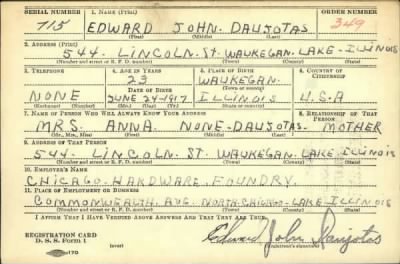 SERIAL NUMBER 1. NAME (Print) ORDER NUMBER
715 EDWARD JOHN. DAUJOTAS 349
(First) (Middle) (Last)
2. ADDRESS (Print)
544. LINCOLN. ST. WAUKEGAN. LAKE- ILLINOIS
(Number and street or R. F. D. number) (Town) (County) (State)
3. TELEPHONE 4. AGE IN YEARS 5. PLACE OF BIRTH 6. COUNTRY OF CITIZENSHIP
23 WAUKEGAN.
(Town or county)
NONE DATE OF BIRTH
JUNE-24-1917 ILLINOIS U.S.A
(Exchange) (Number) (Mo.) (Day) (Yr.) (State or country)
7. NAME OF PERSON WHO WILL ALWAYS KNOW YOUR ADDRESS 8. RELATIONSHIP OF THAT PERSON
MRS. ANNA. NONE-DAUJOTAS. MOTHER
(Mr., Mrs., Miss) (First) (Middle) (Last)
9. ADDRESS OF THAT PERSON
544. LINCOLN. ST. WAUKEGAN. LAKE. ILLINOIS
(Number and street or R. F. D. number) (Town) (County) (State)
10. EMPLOYER'S NAME
CHICAGO-HARDWARE FOUNDRY.
11. PLACE OF EMPLOYMENT OR BUSINESS
COMMONWEALTH. AVE. NORTH-CHICAGO-LAKE-ILLINOIS
(Number and street or R. F. D. number) (Town) (County) (State)
I AFFIRM THAT I HAVE VERIFIED ABOVE ANSWERS AND THAT THEY ARE TRUE.
REGISTRATION CARD
D. S. S. Form 1 (over) Edward John Daujotas
(Registrant's signature)